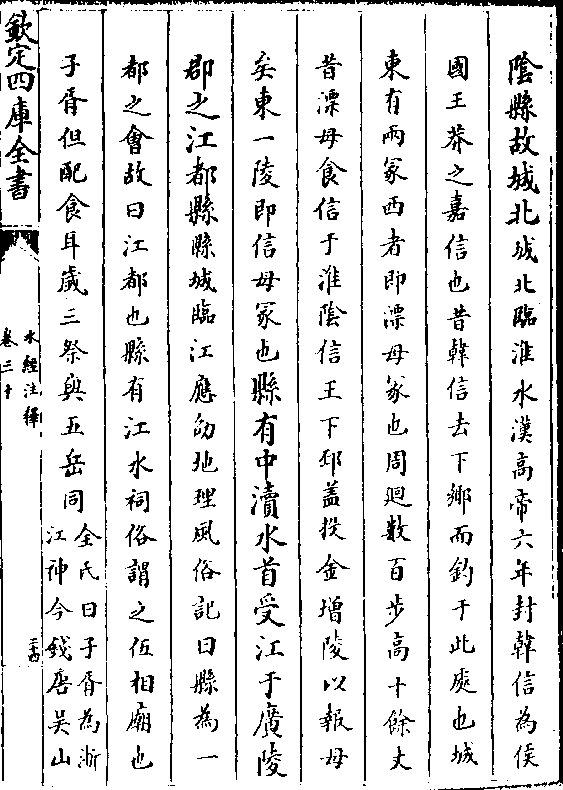 陰縣故城北城北臨淮水漢高帝六年封韓信為侯
國王莽之嘉信也昔韓信去下鄉而釣于此處也城
東有兩冢西者即漂母冢也周迴數百步高十餘丈
昔漂母食信于淮陰信王下邳蓋投金增陵以報母
矣東一陵即信母冢也縣有中瀆水首受江于廣陵
郡之江都縣縣城臨江應劭地理風俗記曰縣為一
都之會故曰江都也縣有江水祠俗謂之伍相廟也
子胥但配食耳歲三祭與五岳同
全氏曰子胥為浙
江神今錢唐吳山
欽定四庫全書
水經注釋
卷三十
三十四